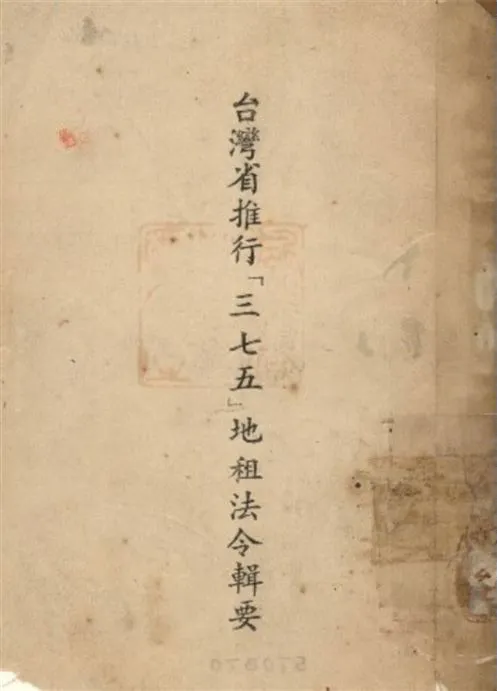 台灣省推行「三七五」地租法令輯要